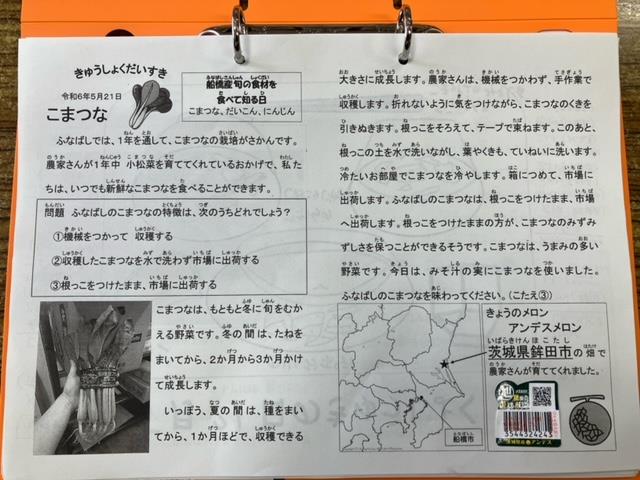 きゅうしょくだいすき
令和6年5月21日
こまつな
船橋産旬の食材を
食べて知る日
こまつな、だいこん、にんじん
ふなばしでは、1年を通して、こまつなの栽培がさかんです。
農家さんが1年中 小松菜を育ててくれているおかげで、私た
ちは、いつでも新鮮なこまつなを食べることができます。
問題 ふなばしのこまつなの特徴は、次のうちどれでしょう?
①機械をつかって 収穫する
②収穫したこまつなを水で洗わず市場に出荷する
③根っこをつけたまま、市場に出荷する
こまつなは、もともと冬に旬をむか
える野菜です。冬の間は、たねを
まいてから、2か月から3か月かけ
て成長します。
いっぽう、夏の間は、種をまい
てから、1か月ほどで、収穫できる
大きさに成長します。農家さんは、機械をつかわず、手作業で
収穫します。折れないように気をつけながら、こまつなのくきを
引きぬきます。根っこをそろえて、テープで束ねます。このあと、
根っこの土を水で洗いながし、葉やくきも、ていねいに洗います。
冷たいお部屋でこまつなを冷やします。箱につめて、市場に
出荷します。ふなばしのこまつなは、根っこをつけたまま、市場
へ出荷します。根っこをつけたままの方が、こまつなのみずみ
ずしさを保つことができるそうです。こまつなは、うまみの多い
野菜です。今日は、みそ汁の実にこまつなを使いました。
ふなばしのこまつなを味わってください。(こたえ③)
船橋市
きょうのメロン
アンデスメロン
茨城県鉾田市の畑で
農家さんが育ててくれました。
3544524243